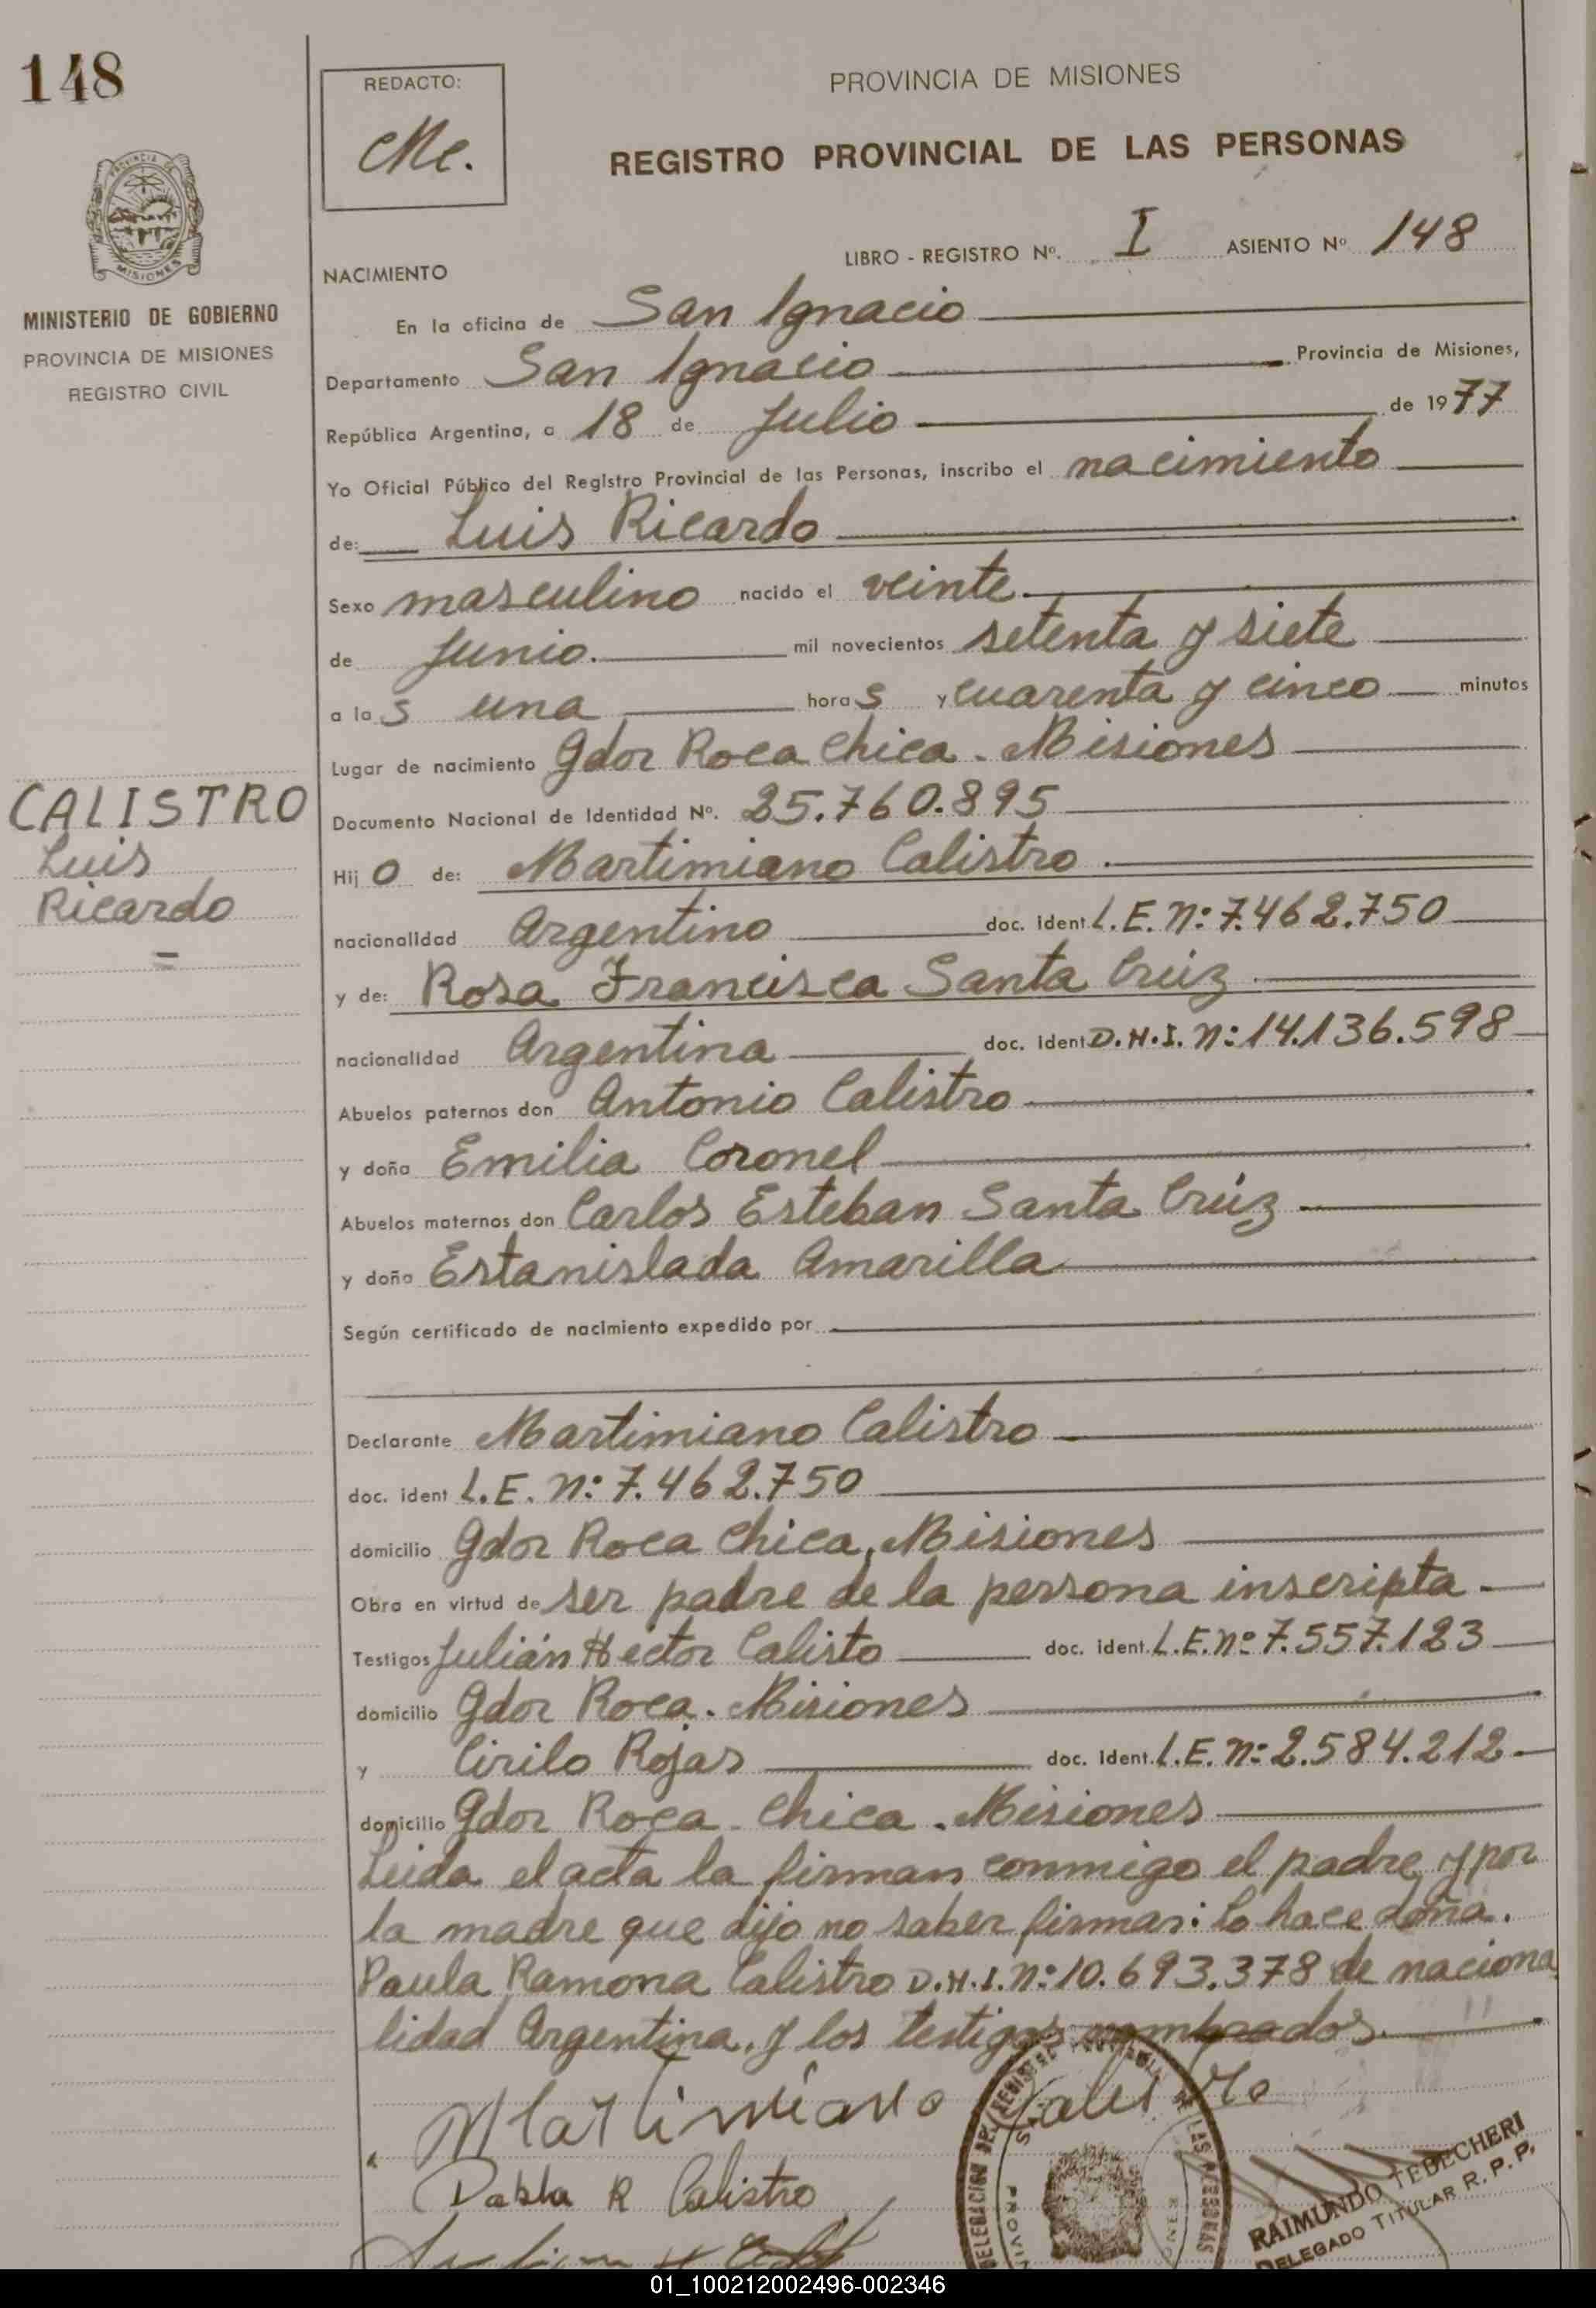 148
REDACTO:
PROVINCIA DE MISIONES
REGISTRO PROVINCIAL DE LAS PERSONAS
LIBRO - REGISTRO Nº. I ASIENTO Nº 148
MINISTERIO DE GOBIERNO
PROVINCIA DE MISIONES
REGISTRO CIVIL
CALISTRO
Luis
Ricardo
=
NACIMIENTO
En la oficina de San Ignacio
Departamento San Ignacio Provincia de Misiones,
República Argentina, a 18 de Julio de 1977
Yo Oficial Público del Registro Provincial de las Personas, inscribo el nacimiento
de: Luis Ricardo
Sexo masculino nacido el veinte
de Junio. mil novecientos setenta y siete
a las una horas y cuarenta y cinco minutos
Lugar de nacimiento Gdor Roca Chica. Misiones
Documento Nacional de Identidad Nº. 25.760.895
Hijo de: Martimiano Calistro.
nacionalidad Argentino doc. ident L.E. Nº: 7.462.750
y de: Rosa Francisca Santa Crúz
nacionalidad Argentina doc. ident D.N.I. Nº: 14.136.598
Abuelos paternos don Antonio Calistro
y doña Emilia Coronel
Abuelos maternos don Carlos Esteban Santa Crúz
y doña Estanislada Amarilla
Según certificado de nacimiento expedido por
Declarante Martimiano Calistro
doc. ident L.E. Nº: 7.462.750
domicilio Gdor Roca Chica, Misiones
Obra en virtud de ser padre de la persona inscripta.
Testigos Julián Hector Calisto doc. ident. L.E. Nº 7.557.123
domicilio Gdor Roca. Misiones
y Cirilo Rojas doc. ident. L.E. Nº: 2.584.212
domicilio Gdor Roca Chica. Misiones
Leida el acta la firman conmigo el padre, y por
la madre que dijo no saber firmar: lo hace doña.
Paula Ramona Calistro D.N.I. Nº: 10.693.378 de naciona
lidad Argentina, y los testigos nombrados.
Martimiano Calistro
R Calistro
RAIMUNDO TEBECHERI
DELEGADO TITULAR R. P. P.
01_100212002496-002346